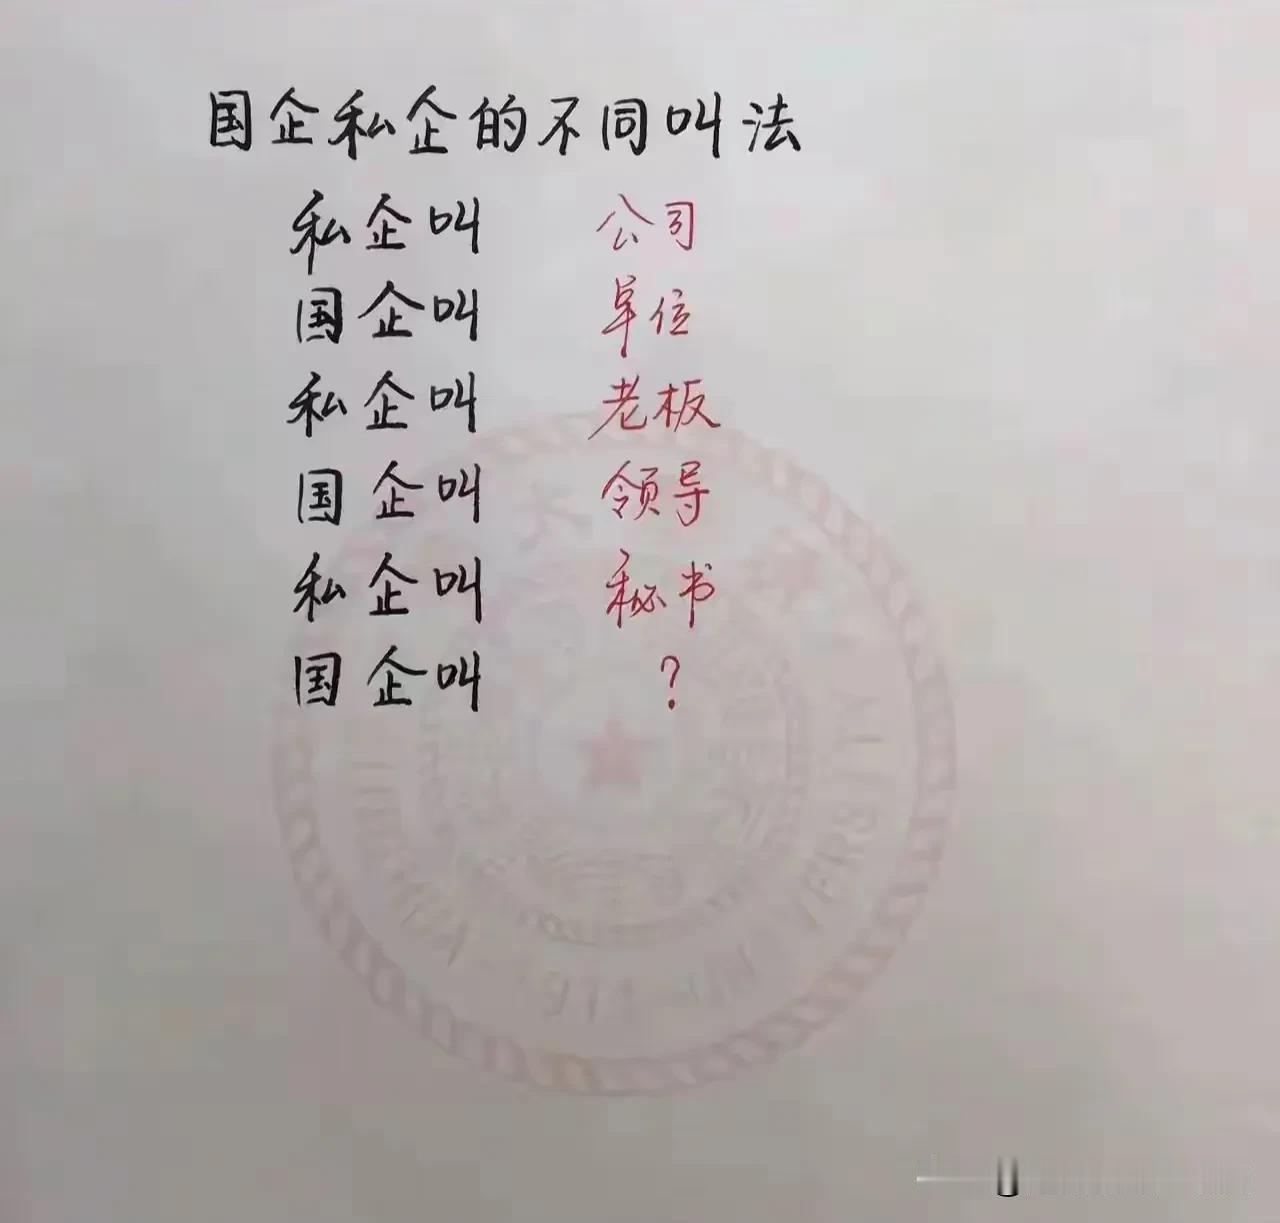 国企私企的不同叫法
私企叫 公司
国企叫 单位
私企叫 老板
国企叫 领导
私企叫 秘书
国企叫 ?
UNIVERSITY